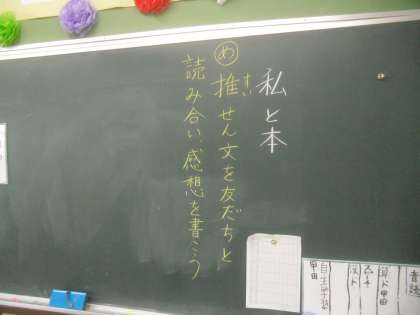 私と本
め 推せん文を友だちと
すい
読み合い、感想を書こう
音読
自主学習